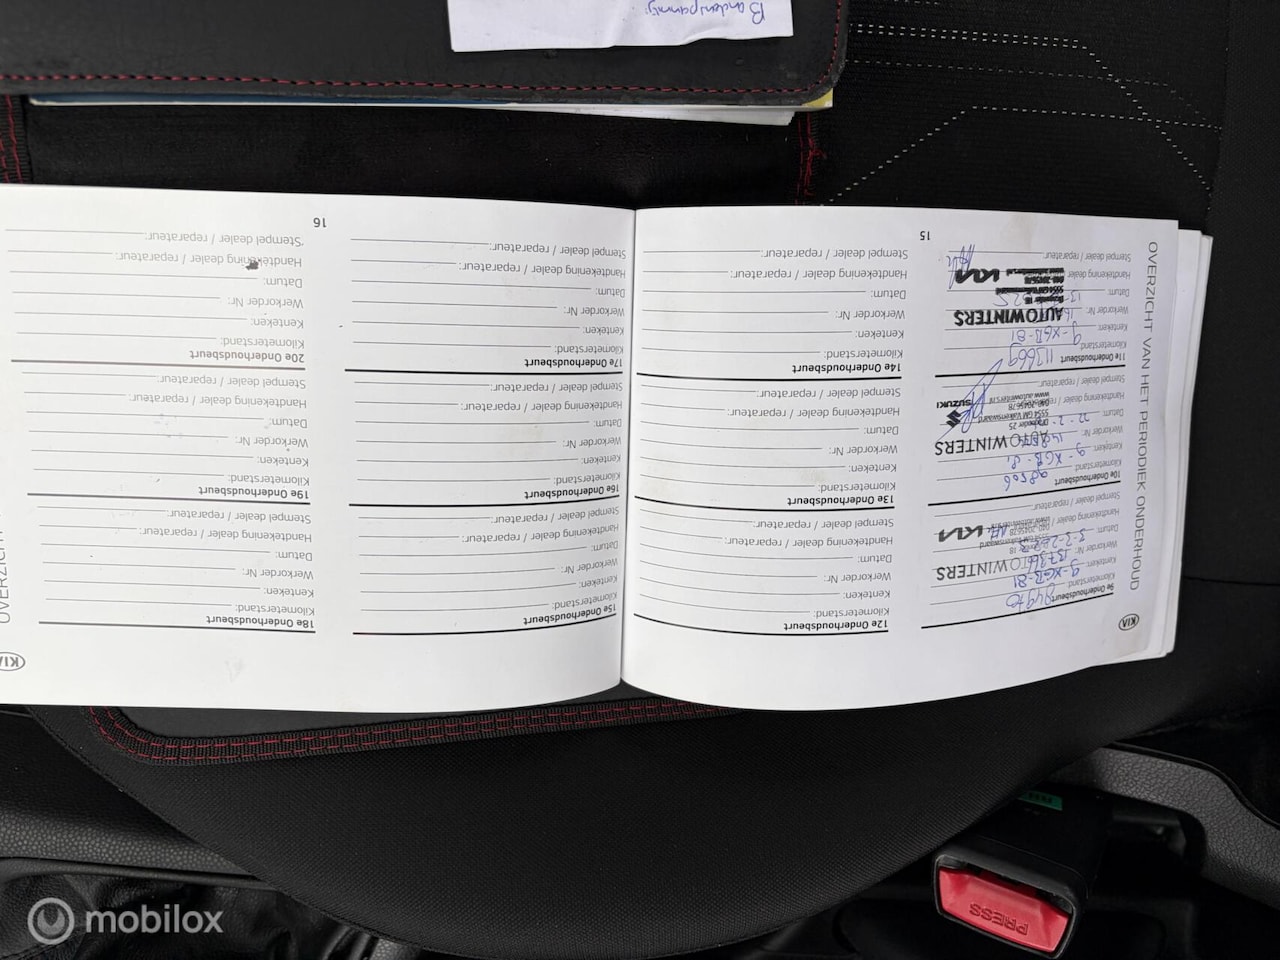 Bandenspanning
OVERZICHT VAN HET PERIODIEK ONDERHOUD
KIA
9e Onderhoudsbeurt
Kilometerstand:
Kenteken: 9-XGB-81
Werkorder Nr:
Datum:
Handtekening dealer / reparateur:
Stempel dealer / reparateur:
AUTOWINTERS
KIA
10e Onderhoudsbeurt
Kilometerstand: 98506
Kenteken: 9-XGB-81
Werkorder Nr:
Datum:
Handtekening dealer / reparateur:
Stempel dealer / reparateur:
AUTOWINTERS
5554 GM Valkenswaard
040-2045678
www.autowinters.nl
SUZUKI
11e Onderhoudsbeurt
Kilometerstand: 113669
Kenteken: 9-XGB-81
Werkorder Nr:
Datum:
Handtekening dealer / reparateur:
Stempel dealer / reparateur:
AUTOWINTERS
KIA
15
12e Onderhoudsbeurt
Kilometerstand:
Kenteken:
Werkorder Nr:
Datum:
Handtekening dealer / reparateur:
Stempel dealer / reparateur:
13e Onderhoudsbeurt
Kilometerstand:
Kenteken:
Werkorder Nr:
Datum:
Handtekening dealer / reparateur:
Stempel dealer / reparateur:
14e Onderhoudsbeurt
Kilometerstand:
Kenteken:
Werkorder Nr:
Datum:
Handtekening dealer / reparateur:
Stempel dealer / reparateur:
15e Onderhoudsbeurt
Kilometerstand:
Kenteken:
Werkorder Nr:
Datum:
Handtekening dealer / reparateur:
Stempel dealer / reparateur:
16e Onderhoudsbeurt
Kilometerstand:
Kenteken:
Werkorder Nr:
Datum:
Handtekening dealer / reparateur:
Stempel dealer / reparateur:
17e Onderhoudsbeurt
Kilometerstand:
Kenteken:
Werkorder Nr:
Datum:
Handtekening dealer / reparateur:
Stempel dealer / reparateur:
16
18e Onderhoudsbeurt
Kilometerstand:
Kenteken:
Werkorder Nr:
Datum:
Handtekening dealer / reparateur:
Stempel dealer / reparateur:
19e Onderhoudsbeurt
Kilometerstand:
Kenteken:
Werkorder Nr:
Datum:
Handtekening dealer / reparateur:
Stempel dealer / reparateur:
20e Onderhoudsbeurt
Kilometerstand:
Kenteken:
Werkorder Nr:
Datum:
Handtekening dealer / reparateur:
Stempel dealer / reparateur:
OVERZICHT
KIA
PRESS
mobilox